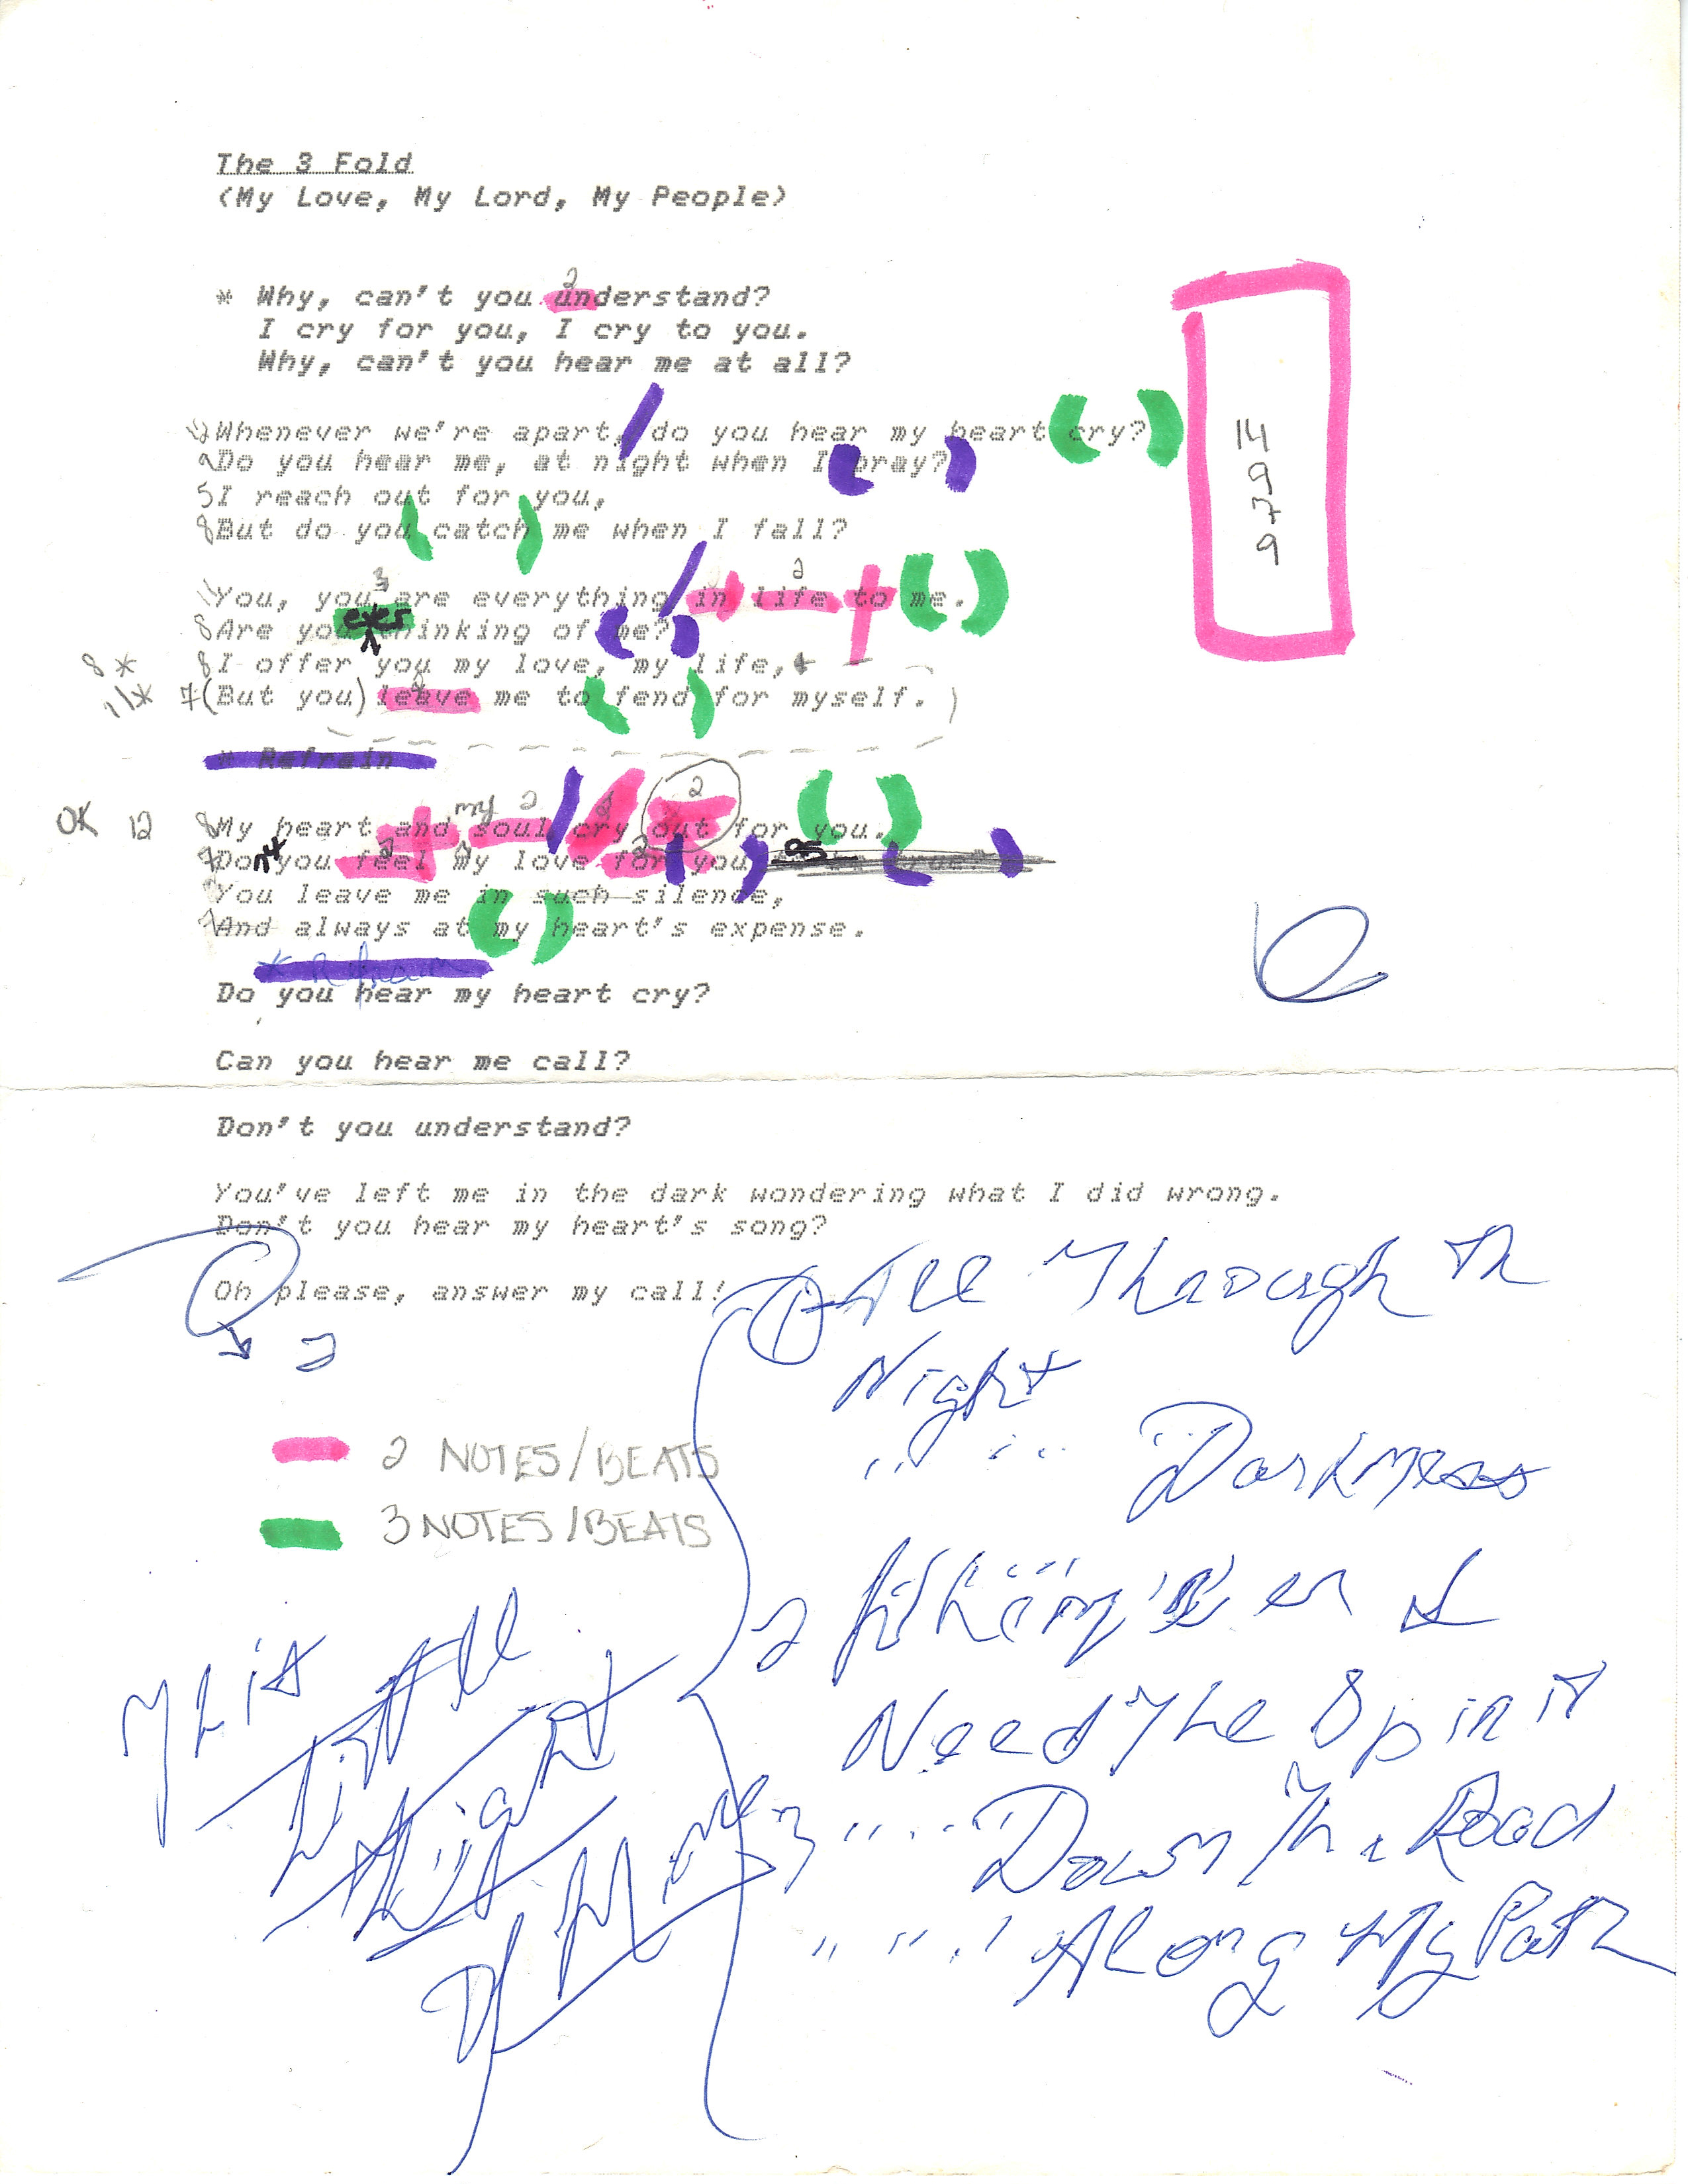 The 3 Fold
(My Love, My Lord, My People)
2
* Why, can't you understand?
I cry for you, I cry to you.
Why, can't you hear me at all?
12 Whenever we're apart, do you hear my heart cry?
9 Do you hear me, at night when I pray?
5 I reach out for you,
8 But do you catch me when I fall?
14
9
7
9
3 2
11 You, you are everything in life to me.
ever
8 Are you thinking of me?
8 * 8 I offer you my love, my life,
11* 7 (But you) leave me to fend for myself.)
* Refrain
my 2 2 2
OK 12 8 My heart and soul cry out for you.
7 Do you feel my love for you
You leave me in such silence,
7 And always at my heart's expense.
* Refrain
Do you hear my heart cry?
Can you hear me call?
Don't you understand?
You've left me in the dark wondering what I did wrong.
Don't you hear my heart's song?
Oh please, answer my call!
2
1 All Through Th
Night
" " " Darkness
2 NOTES/BEATS
3 NOTES/BEATS
2 When I
Need The Spirit
3 " " " Down The Road
" " " Along My Path
This
Little
Light
Of Mine